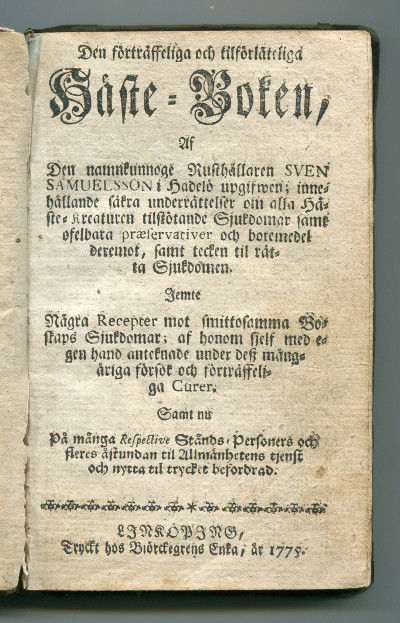 Den förträffeliga och tilförlåteliga
Häste-Boken,
Af
Den namnkunnoge Rusthållaren SVEN
SAMUELSSON i Hadelö upgifwen; inne-
hållande säkra underrättelser om alla Hä-
ste-Kreaturen tilstötande Sjukdomar samt
ofelbara præservativer och botemedel
deremot, samt tecken til rät-
ta Sjukdomen.
Jemte
Några Recepter mot smittosamma Bo-
skaps Sjukdomar; af honom sjelf med e-
gen hand anteknade under deß mång-
åriga försök och förträffeli-
ga Curer.
Samt nu
På många Respective Stånds-Personers och
fleres åstundan til Allmänhetens tjenst
och nytta til trycket befordrad.
LINKÖPING,
Tryckt hos Biörckegrens Enka, år 1775.